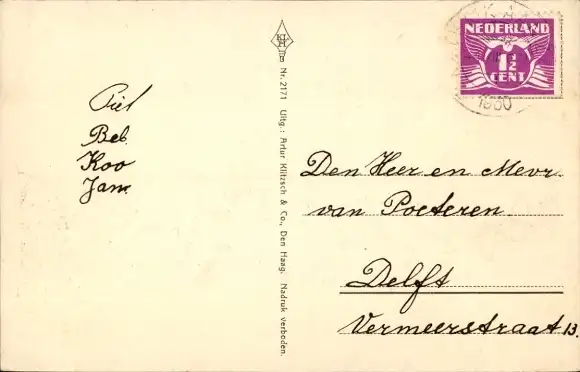 Piet
Beb.
Koo
Jam
Nr. 2171 Uitg.: Artur Klitzsch & Co., Den Haag. Nadruk verboden.
NEDERLAND
1½
CENT
1930
Den Heer en Mevr.
van Poeteren.
Delft
Vermeerstraat 13.